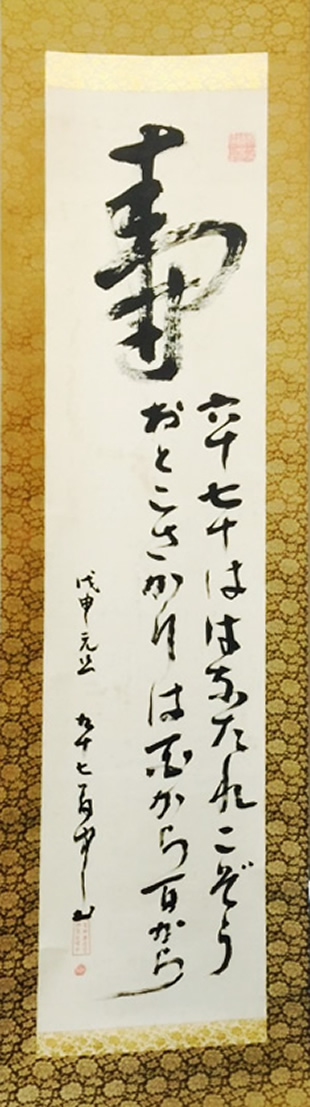 壽
六十七十ははなたれこぞう
おとこさかりは百から百から
戊申元旦 九十七